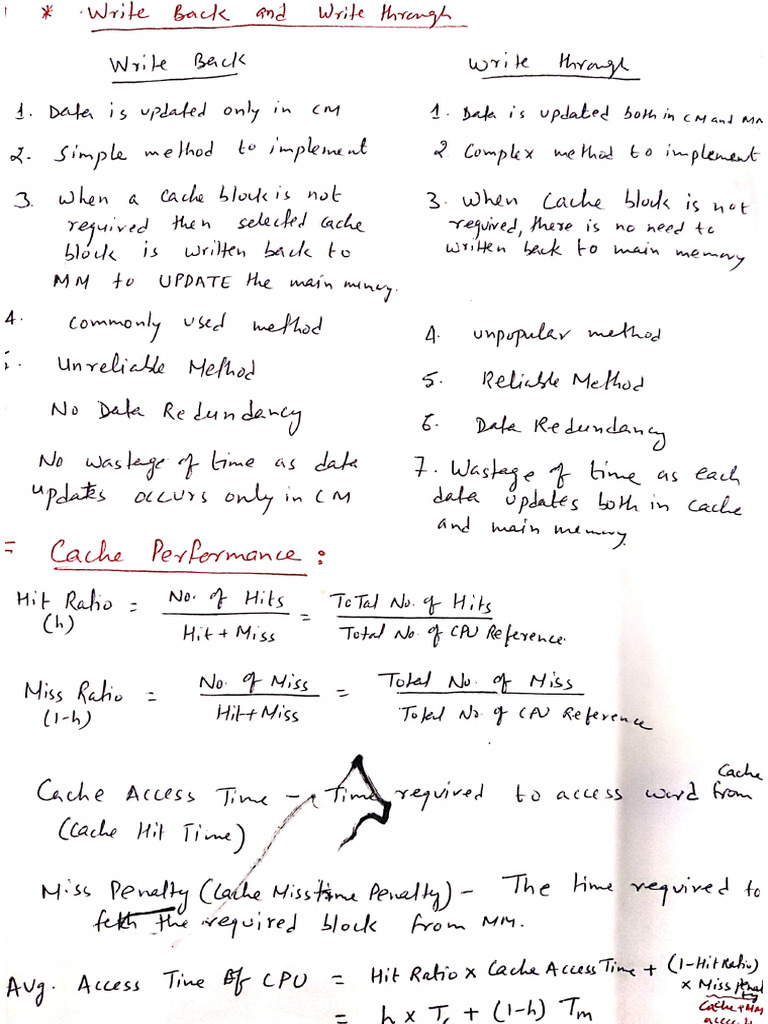 * Write Back and Write through
Write Back
1. Data is updated only in CM
2. Simple method to implement
3. When a cache block is not
required then selected cache
block is written back to
MM to UPDATE the main
4. Commonly used method
Unreliable Method
No Data Redundancy
No wastage of time as data
updates occurs only in CM
Write through
1. Data is updated both in CM and MM
2 Complex method to implement
3. When Cache block is not
required, there is no need to
written back to main memory
4. unpopular method
5. Reliable Method
6. Data Redundancy
7. Wastage of time as each
data updates both in cache
and main memory.
= Cache Performance :
Hit Ratio = No. of Hits / Hit + Miss = Total No. of Hits / Total No. of CPU Reference.
(h)
Miss Ratio = No. of Miss / Hit+Miss = Total No. of Miss / Total No. of CPU Reference
(1-h)
Cache Access Time - Time required to access word from Cache
(Cache Hit Time)
Miss Penalty (Cache Miss time Penalty) - The time required to
feth the required block from MM.
Avg. Access Time of CPU = Hit Ratio x Cache Access Time + (1-Hit Ratio)
x Miss
= h x Tc + (1-h) Tm